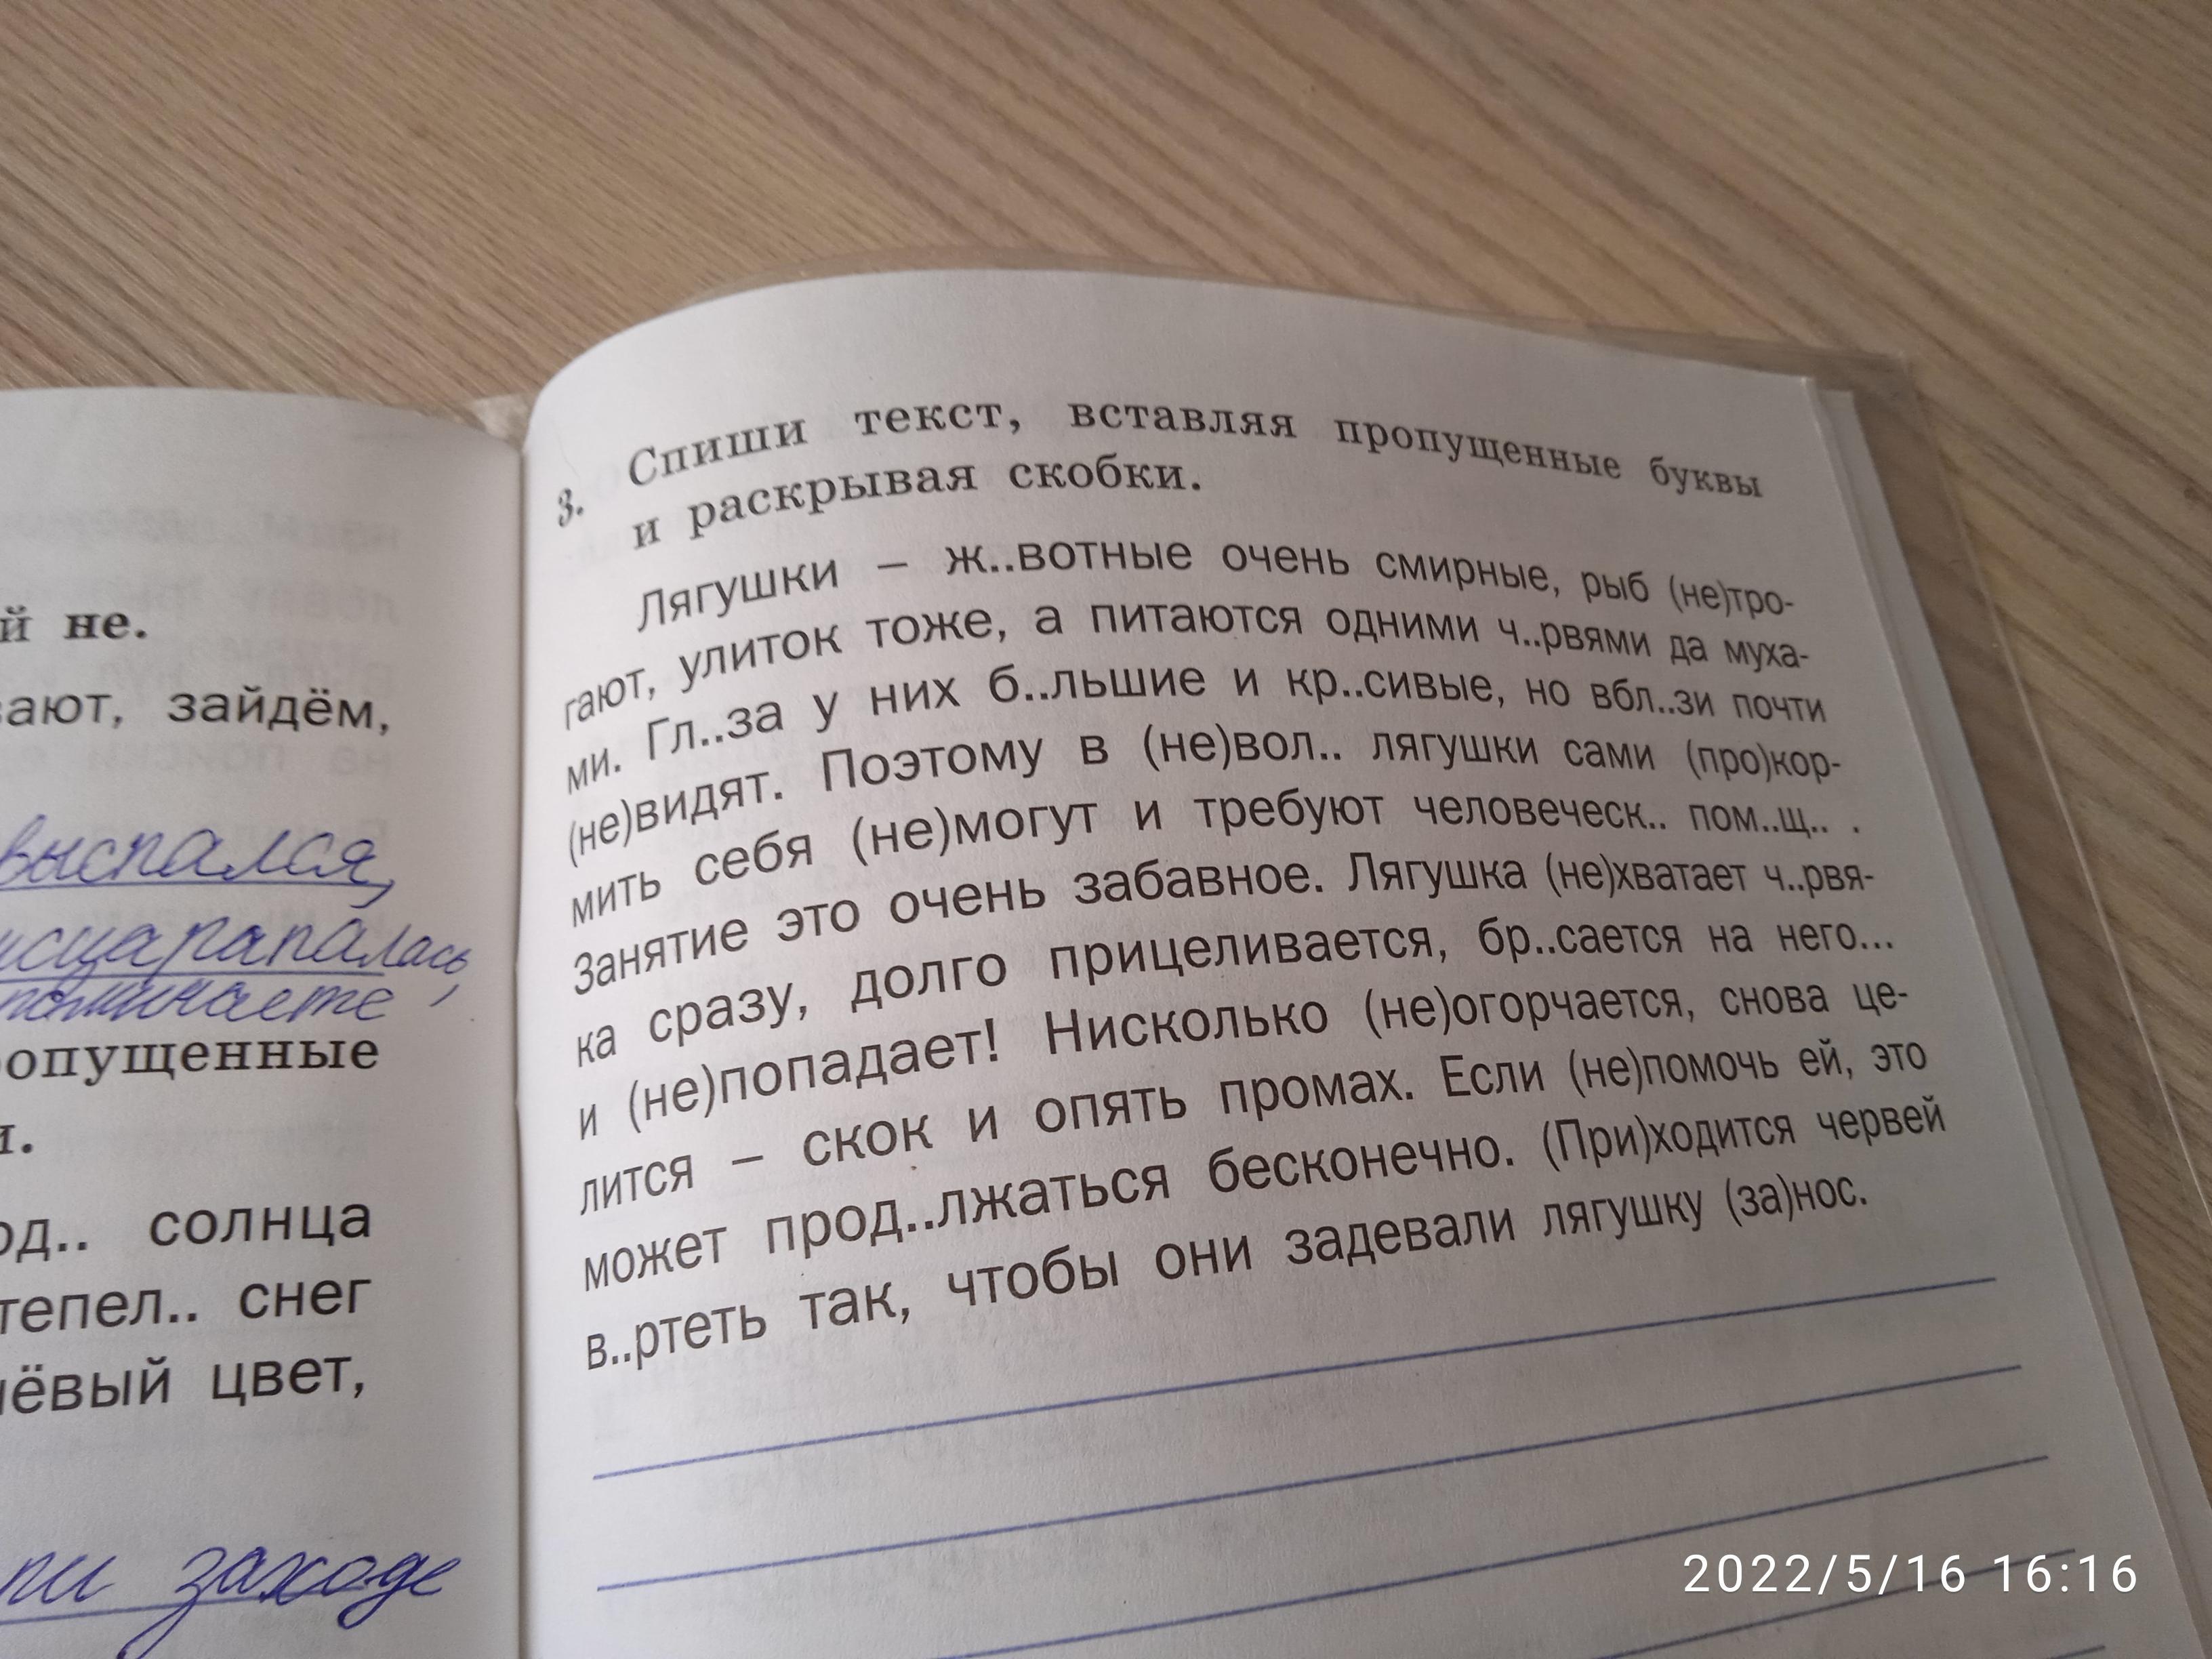 й не.
ают, зайдём,
выспался,
исцарапалась,
опущенные
од.. солнца
тепел.. снег
ёвый цвет,
заходе
3. Спиши текст, вставляя пропущенные буквы
и раскрывая скобки.
Лягушки – ж..вотные очень смирные, рыб (не)тро-
гают, улиток тоже, а питаются одними ч..рвями да муха-
ми. Гл..за у них б..льшие и кр..сивые, но вбл..зи почти
(не)видят. Поэтому в (не)вол.. лягушки сами (про)кор-
мить себя (не)могут и требуют человеческ.. пом..щ.. .
Занятие это очень забавное. Лягушка (не)хватает ч..рвя-
ка сразу, долго прицеливается, бр..сается на него...
и (не)попадает! Нисколько (не)огорчается, снова це-
лится – скок и опять промах. Если (не)помочь ей, это
может прод..лжаться бесконечно. (При)ходится червей
в..ртеть так, чтобы они задевали лягушку (за)нос.
2022/5/16 16:16